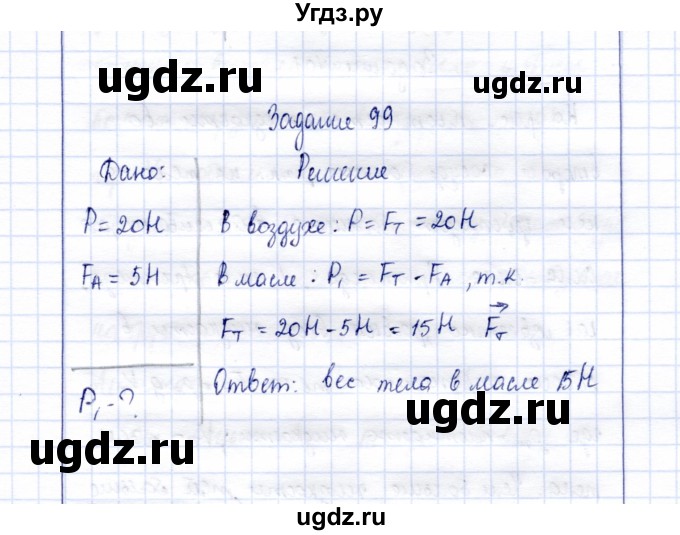 Угдз.ру
ugdz.ru ugdz.ru
Задание 99
Дано: Решение
P=20Н В воздухе: P=Fт=20Н
FA=5Н В масле: P₁=Fт-FA, т.к.
Fт=20Н-5Н=15Н Fт
P₁-? Ответ: вес тела в масле 15Н
ugdz.ru
ugdz.ru
ugdz.ru